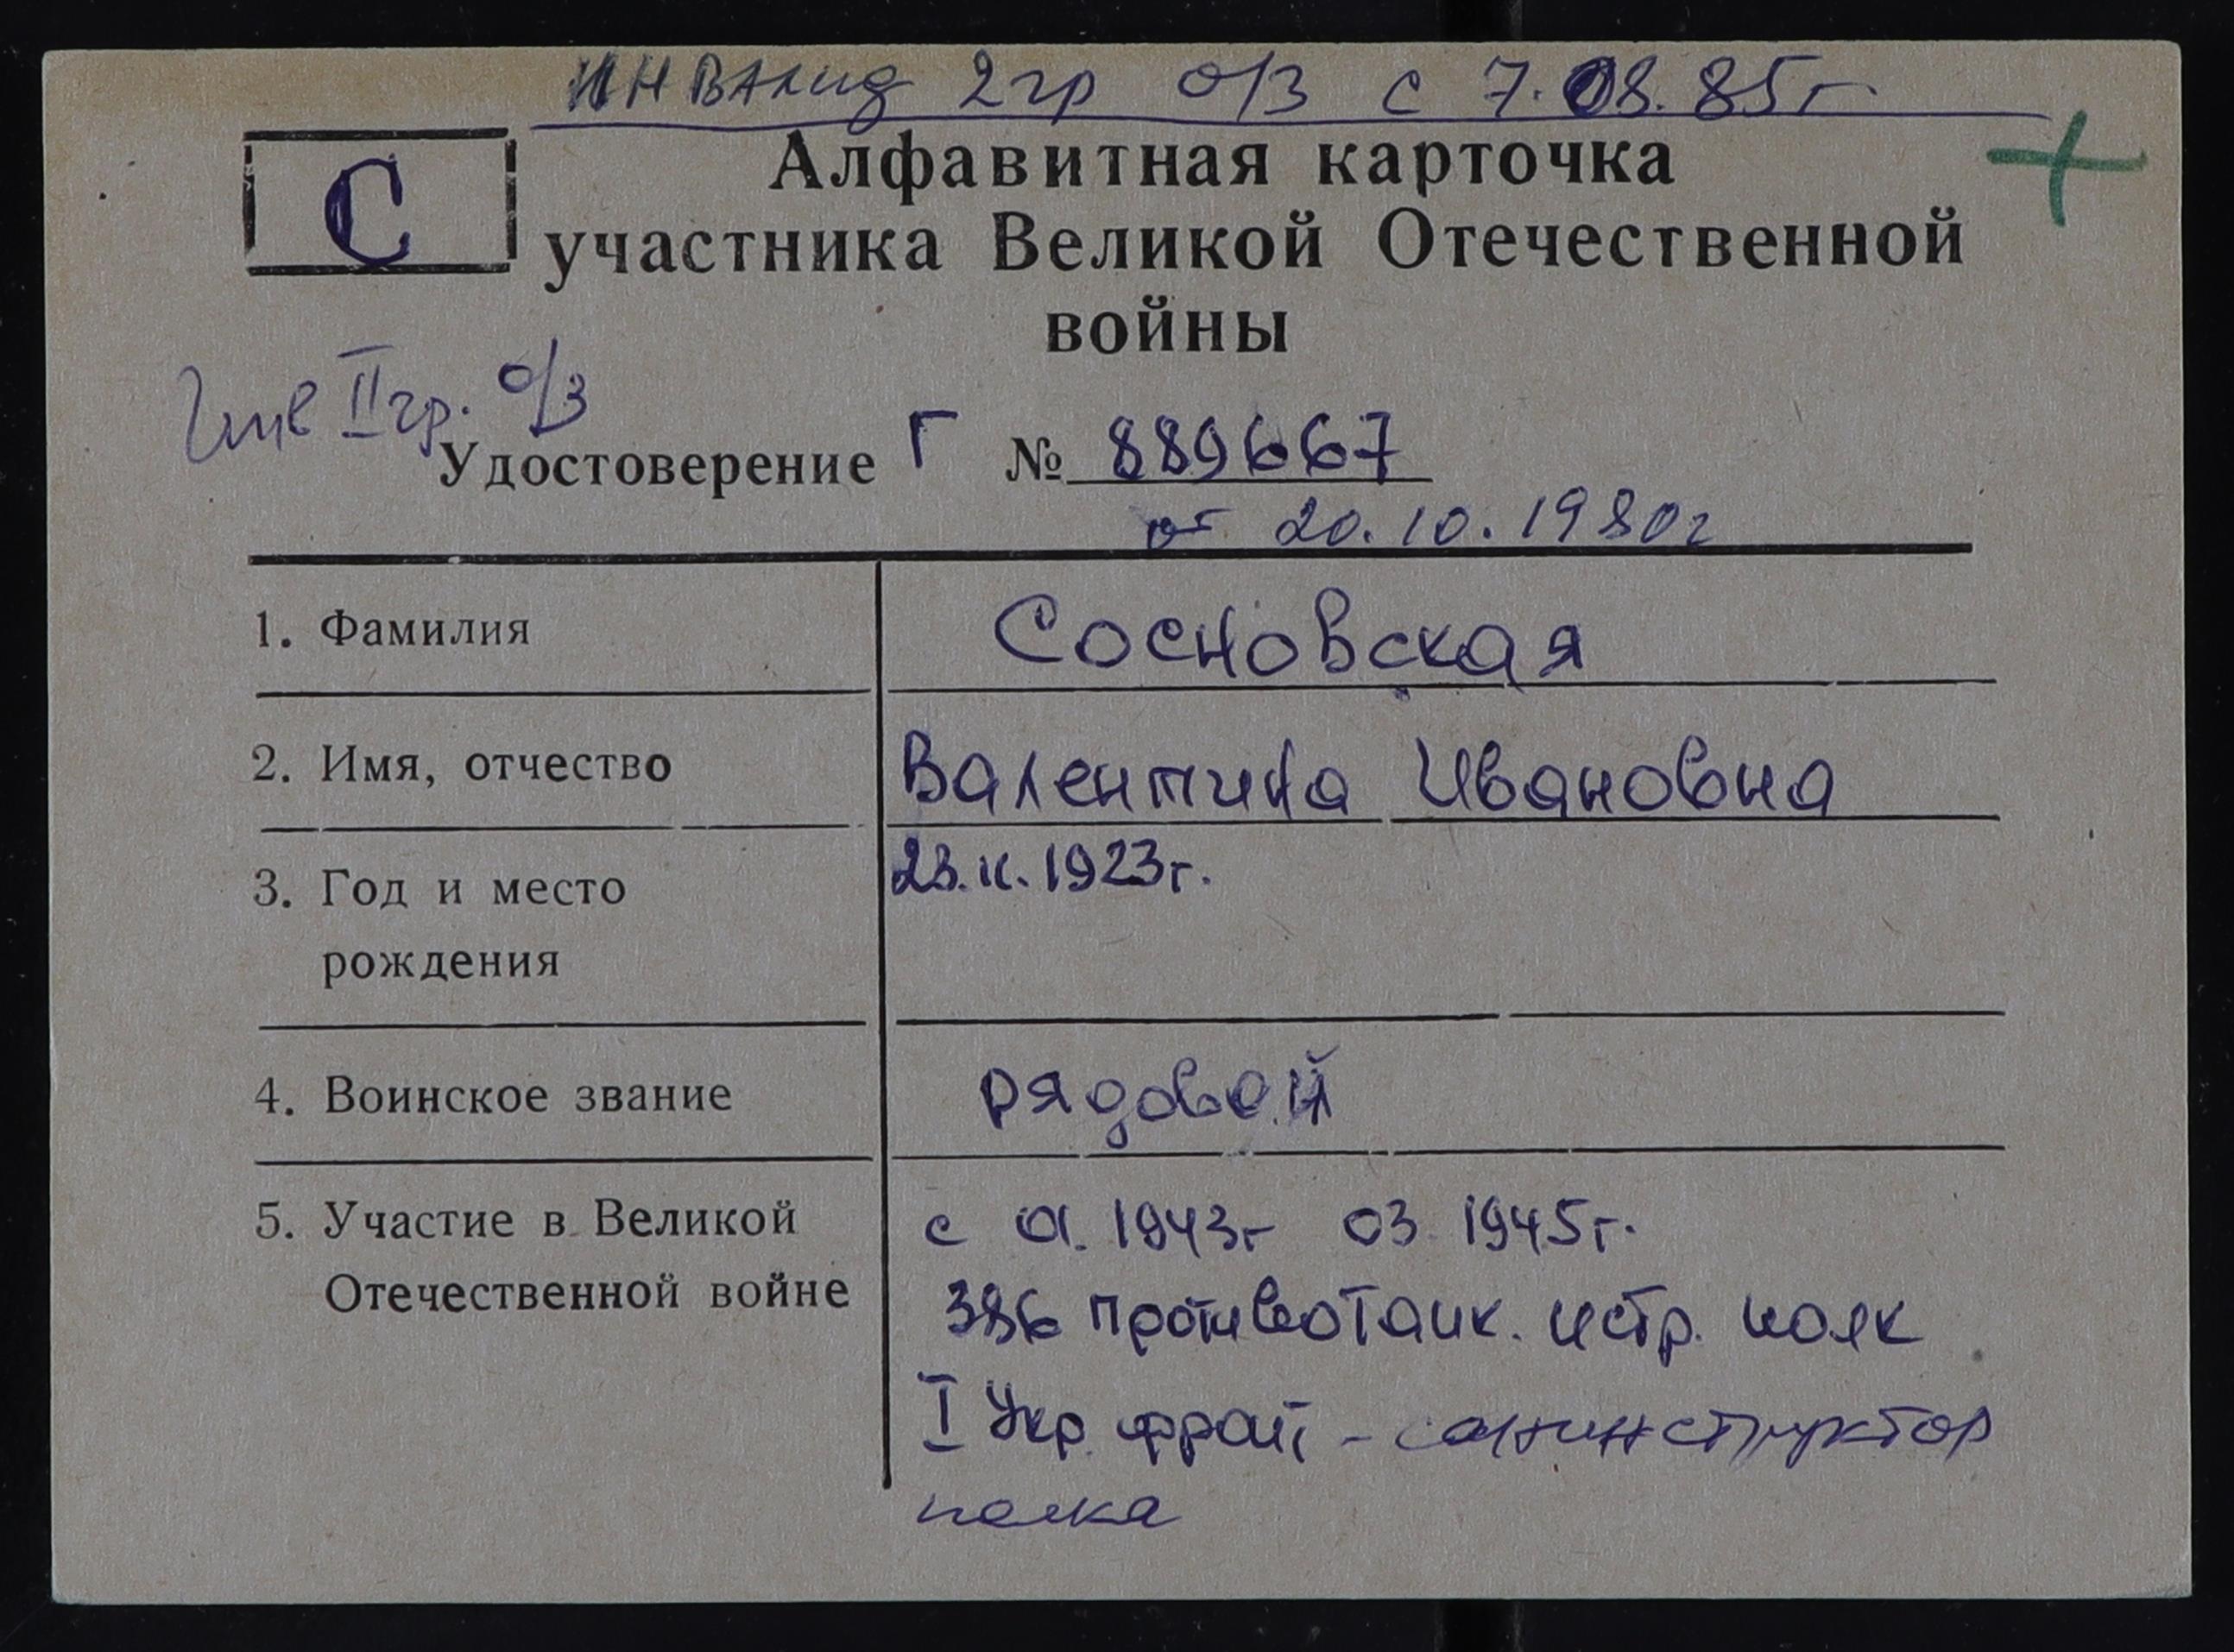 инвалид 2 гр о/з с 7.08.85г
С
Алфавитная карточка
участника Великой Отечественной
войны
Инв II гр. о/з
Удостоверение Г № 889667
от 20.10.1980г
1. Фамилия Сосновская
2. Имя, отчество Валентина Ивановна
3. Год и место 1923г.
рождения
4. Воинское звание рядовой
5. Участие в Великой с 01.1943г 03 1945г.
Отечественной войне 386 противотанк. истр. полк
I Укр. фронт - санинструктор
полка